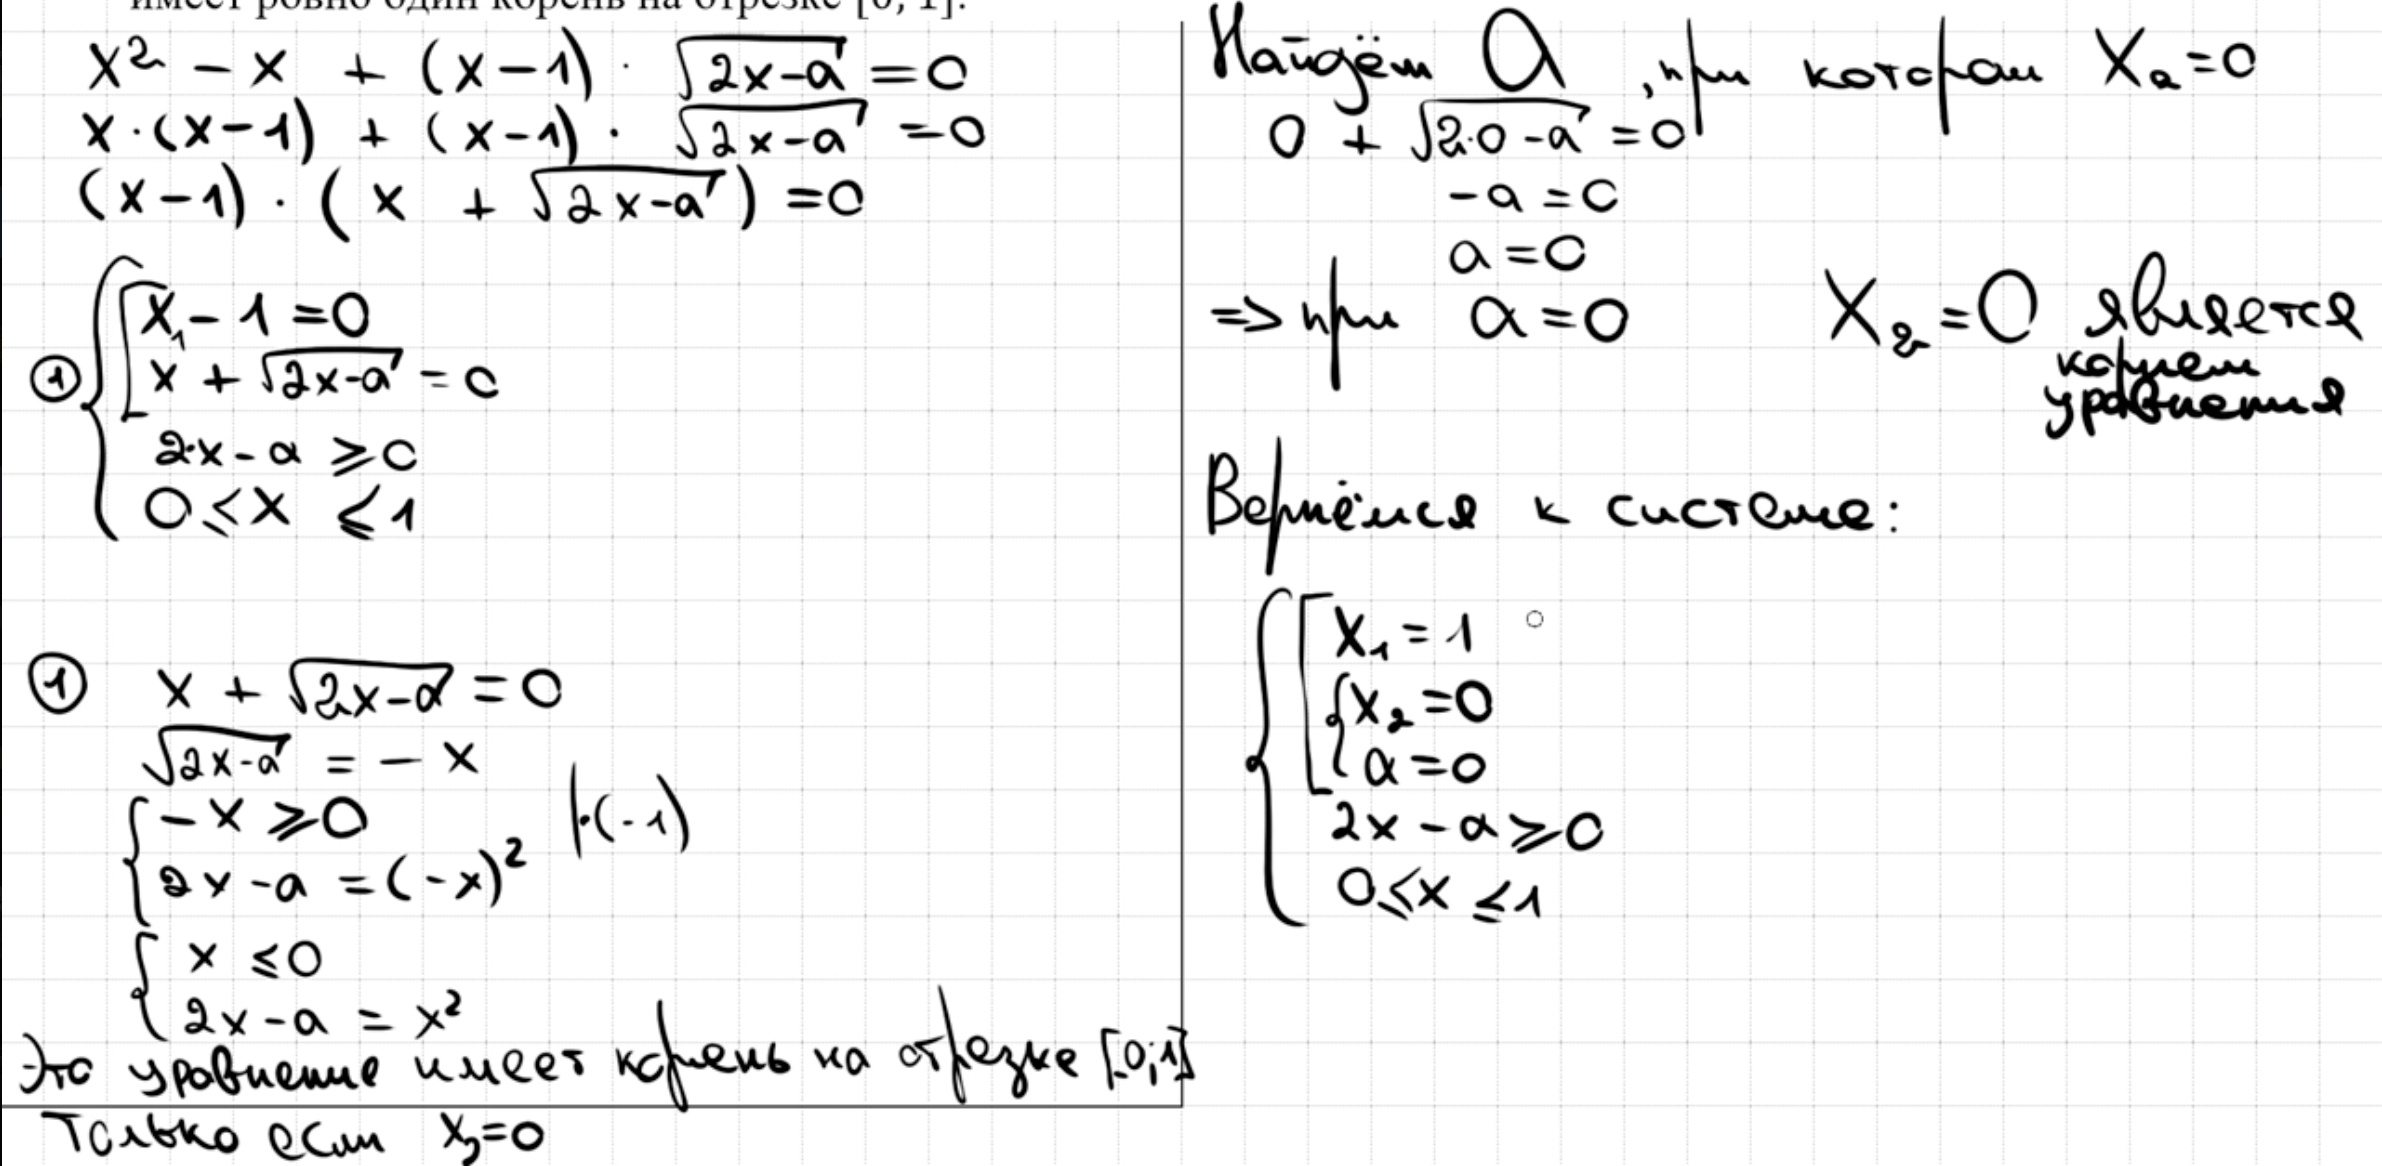 имеет ровно один корень на отрезке [0; 1].
x² - x + (x-1) · √(2x-a) = 0
x·(x-1) + (x-1) · √(2x-a) = 0
(x-1) · (x + √(2x-a)) = 0
① { [ x₁ - 1 = 0
x + √(2x-a) = 0
2·x - a ⩾ 0
0 ⩽ x ⩽ 1
① x + √(2x-a) = 0
√(2x-a) = - x
{ - x ⩾ 0 |·(-1)
2x - a = (-x)²
{ x ⩽ 0
2x - a = x²
Это уравнение имеет корень на отрезке [0;1]
только если x₂=0
Найдём a, при котором x₂=0
0 + √(2·0-a) = 0
-a = 0
a = 0
=> при a = 0 x₂ = 0 является
корнем
уравнения
Вернёмся к системе:
{ [ x₁ = 1
{ x₂ = 0
a = 0
2x - a ⩾ 0
0 ⩽ x ⩽ 1